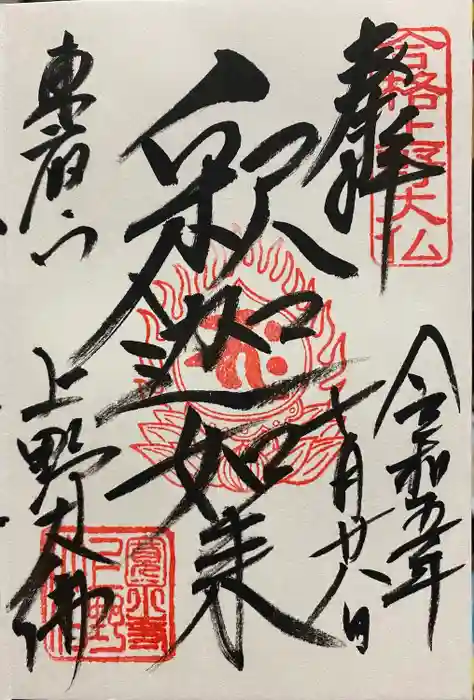 合格上野大仏
奉拝
令和五年
十月廿八日
釈迦如来
東叡山
上野大佛